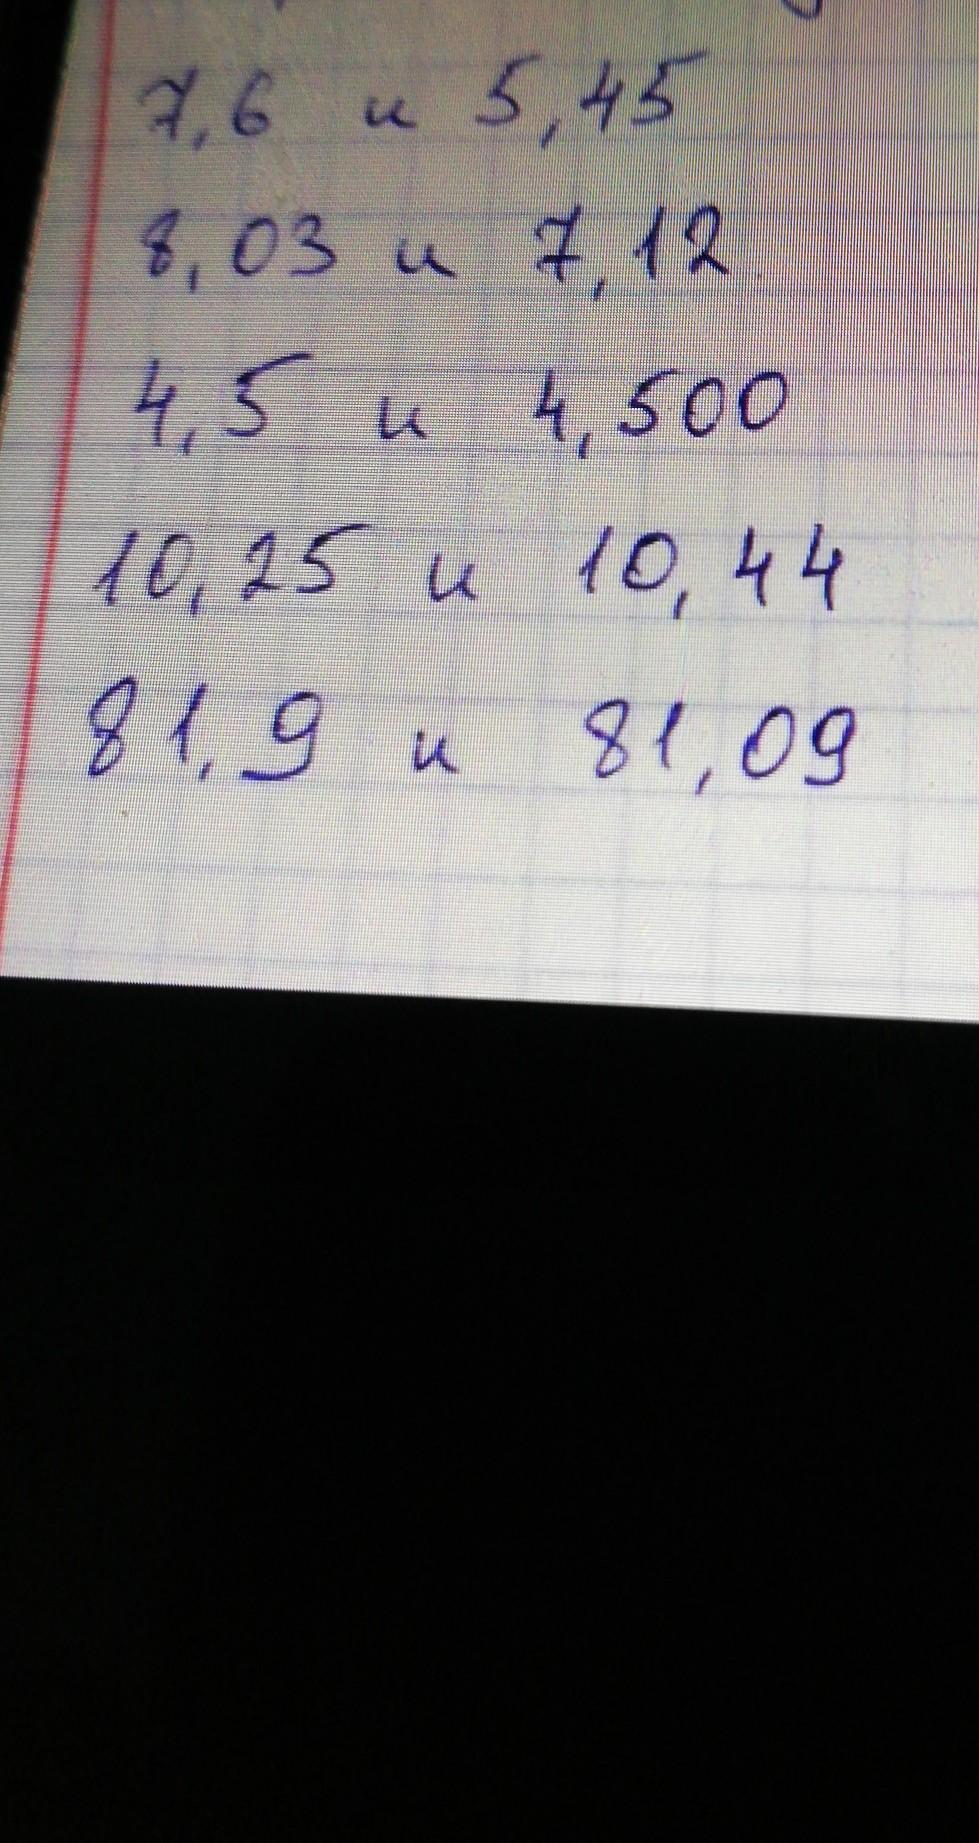 7,6 и 5,45
8,03 и 7,12
4,5 и 4,500
10,25 и 10,44
81,9 и 81,09